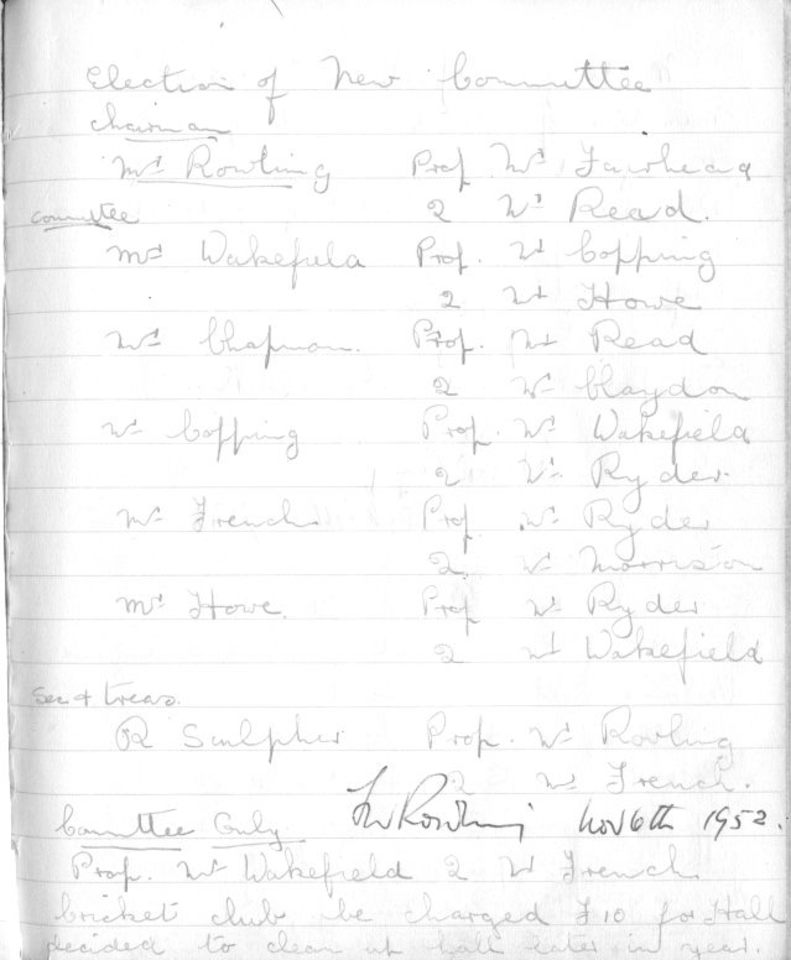 Election of New Committee
chairman
Mr Rowling Prop Mr Fairhead
2 Mr Read.
committee
Mr Wakefield Prop. Mr Copping
2 Mr Howe
Mr Chapman. Prop. Mr Read
2 Mr Claydon
Mr Copping Prop. Mr Wakefield
2 Mr Ryder.
Mr French Prop Mr Ryder
2 Mr Morrison
Mr Howe. Prop Mr Ryder
2 Mr Wakefield
Sec & treas.
R Sculpher Prop. Mr Rowling
2 Mr French.
Committee Only Rowling Nov 6th 1952.
Prop. Mr Wakefield 2 Mr French
Cricket club be charged £10 for Hall
decided to clean up hall later in year.